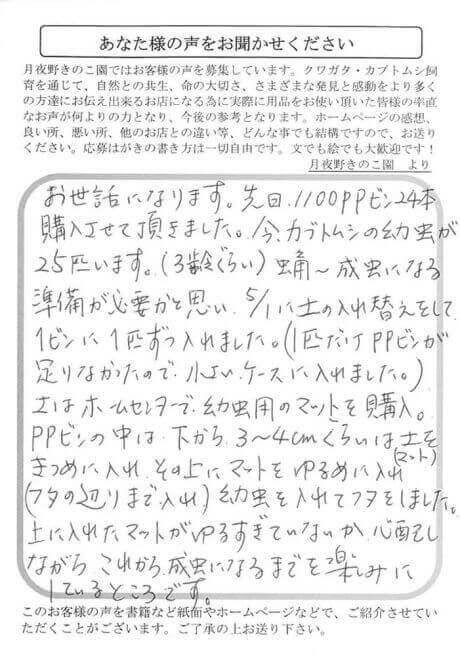 あなた様の声をお聞かせください
月夜野きのこ園ではお客様の声を募集しています。クワガタ・カブトムシ飼
育を通じて、自然との共生、命の大切さ、さまざまな発見と感動をより多く
の方達にお伝え出来るお店になる為に実際に用品をお使い頂いた皆様の率直
なお声が何よりの力となり、今後の参考となります。ホームページの感想、
良い所、悪い所、他のお店との違い等、どんな事でも結構ですので、お送り
ください。応募はがきの書き方は一切自由です。文でも絵でも大歓迎です！
月夜野きのこ園　より
お世話になります。先日、1100PPビン24本
購入させて頂きました。今、カブトムシの幼虫が
25匹います。(3齢ぐらい)蛹～成虫になる
準備が必要かと思い、5/1に土の入れ替えをして
1ビンに1匹ずつ入れました。(1匹だけPPビンが
足りなかったので、小さいケースに入れました。)
土はホームセンターで、幼虫用のマットを購入。
PPビンの中は、下から、3～4cmくらいは土を
(マット)
きつめに入れ、その上にマットをゆるめに入れ
(フタの辺りまで入れ)幼虫を入れてフタをしました。
上に入れたマットがゆるすぎていないか、心配し
ながら、これから、成虫になるまでを楽しみに
しているところです。
このお客様の声を書籍など紙面やホームページなどで、ご紹介させてい
ただくことがございます。ご了承の上お送り下さい。